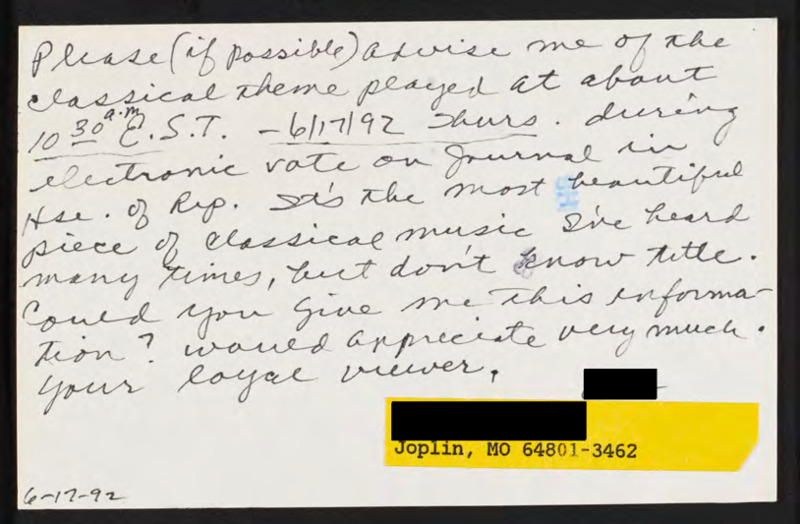 Please (if possible) advise me of the
classical theme played at about
10 30 a.m E.S.T. - 6/17/92 Thurs. during
electronic vote on Journal in
Hse. of Rep. It's the most beautiful
piece of classical music I've heard
many times, but don't know title.
Could you give me this informa-
tion? would appreciate very much.
Your loyal viewer,
Joplin, MO 64801-3462
6-17-92